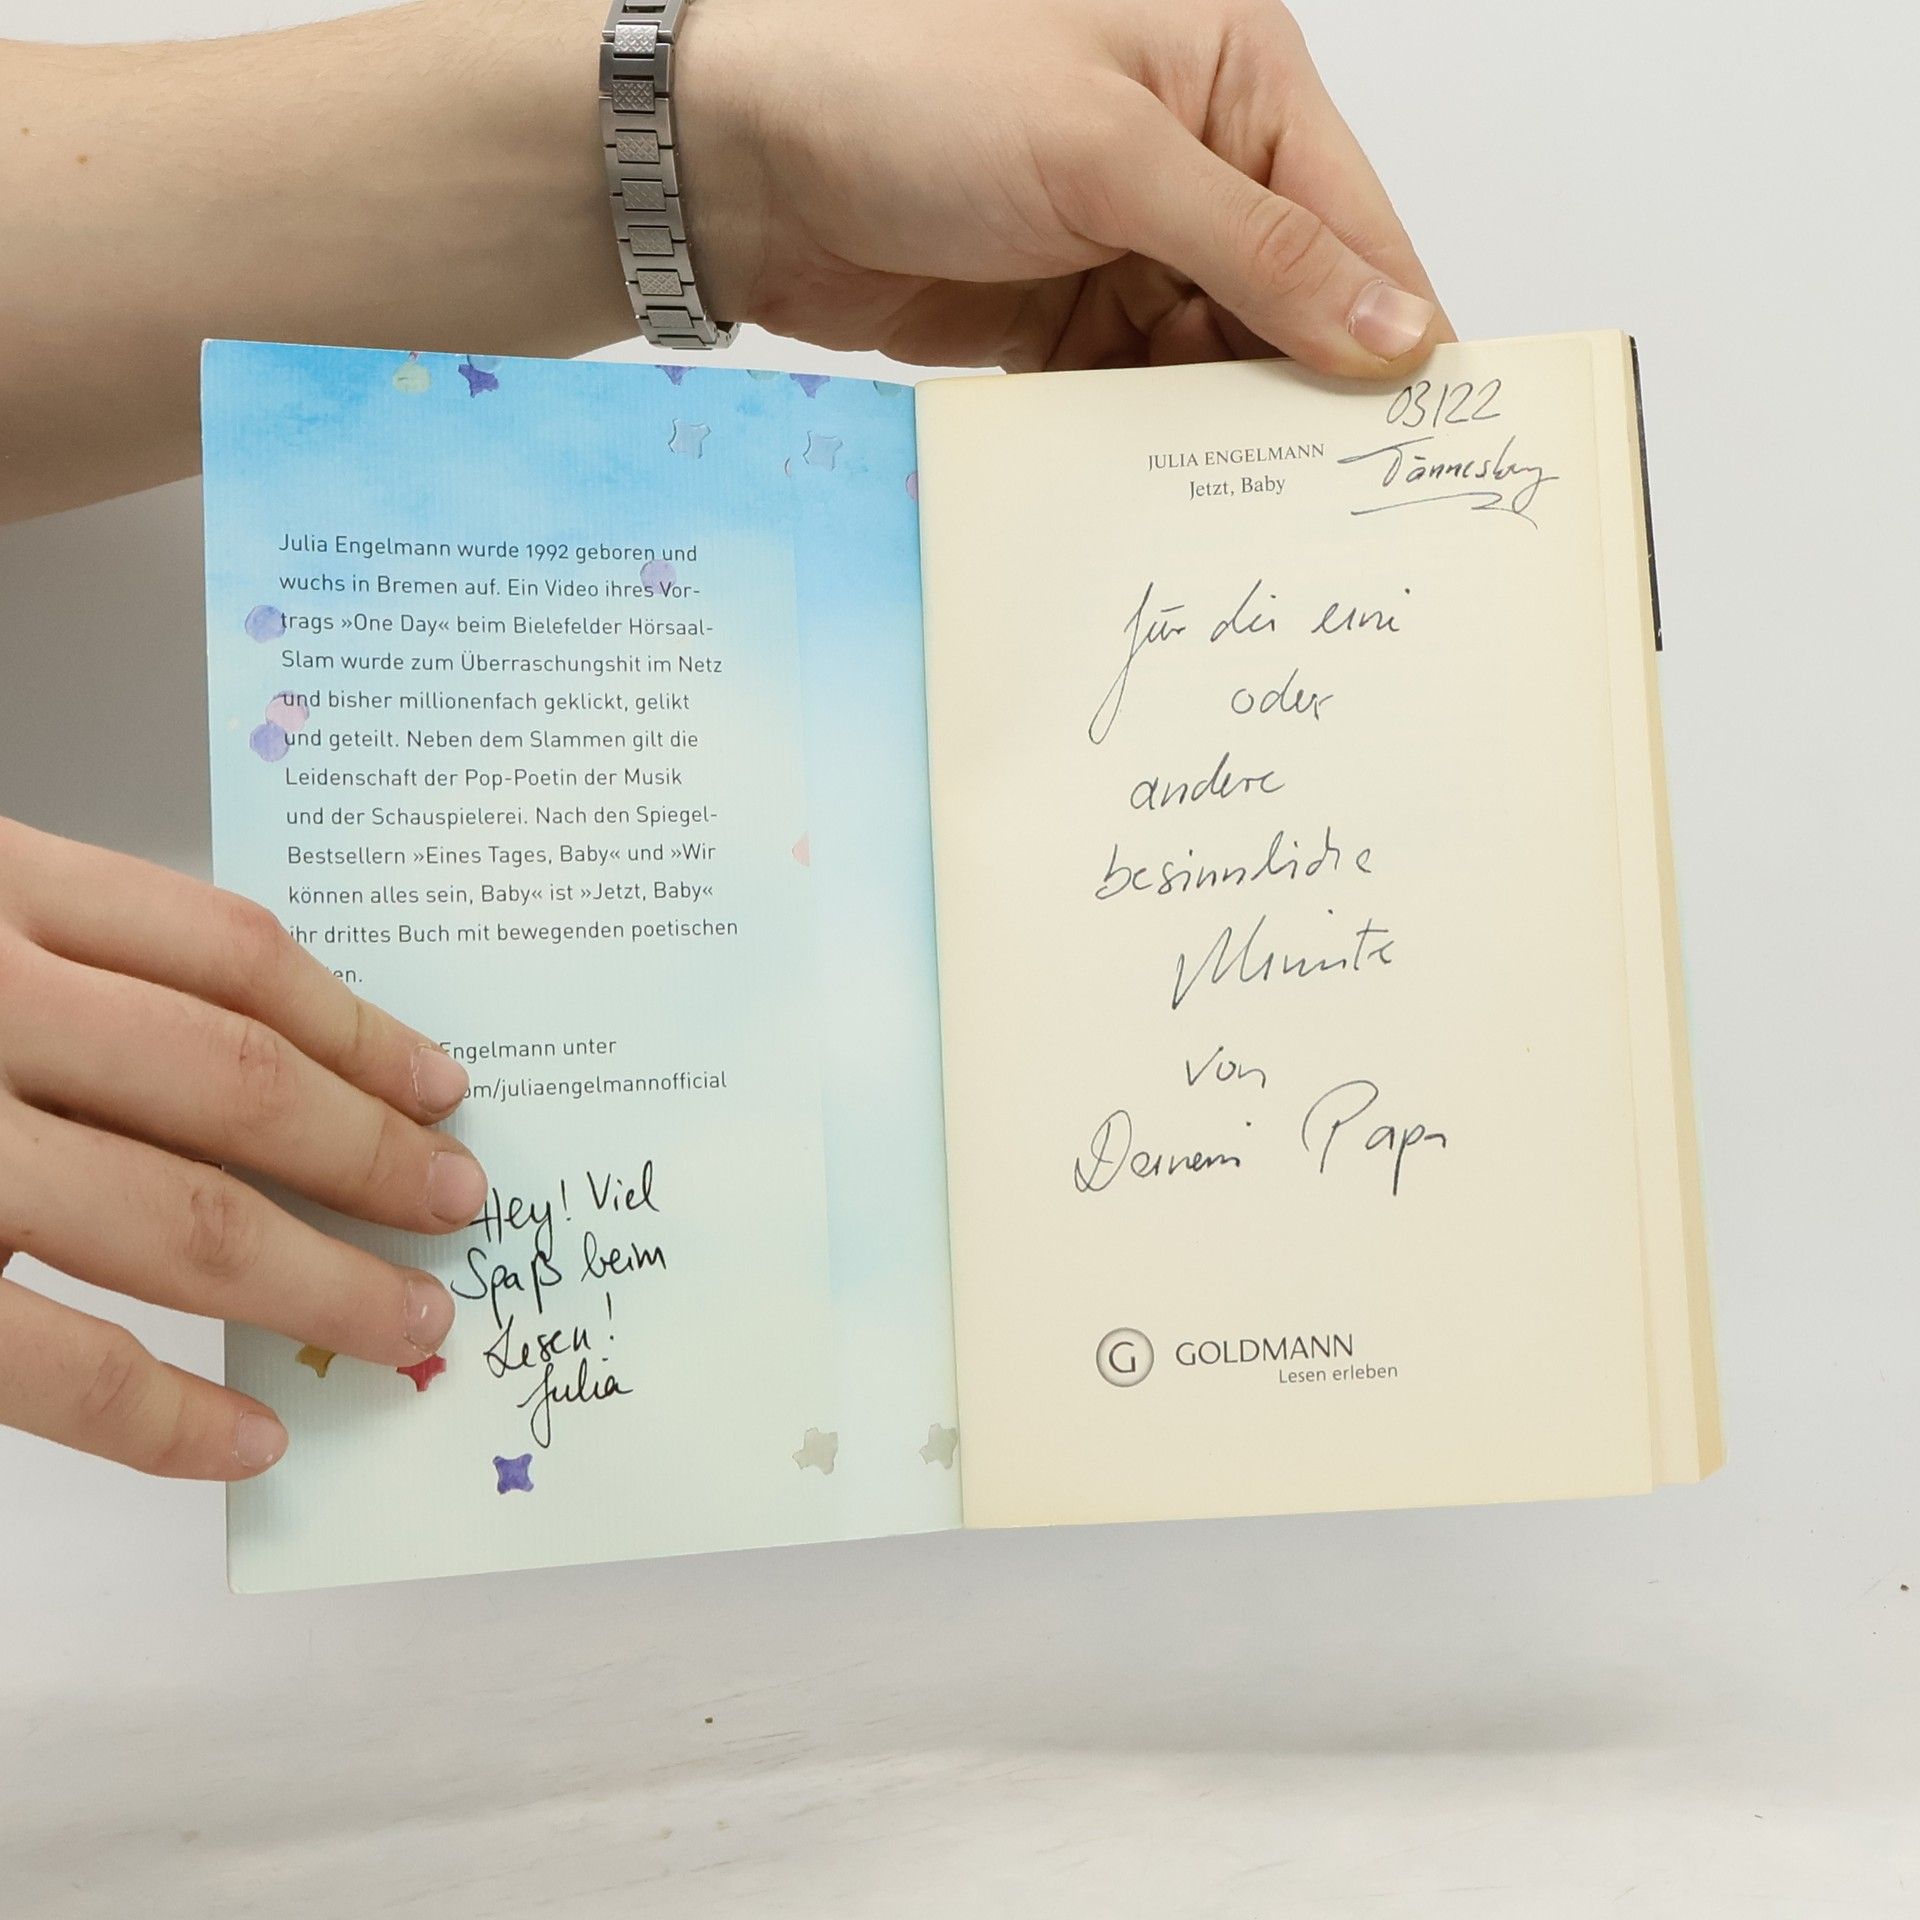 Julia Engelmann wurde 1992 geboren und
wuchs in Bremen auf. Ein Video ihres Vor-
trags »One Day« beim Bielefelder Hörsaal-
Slam wurde zum Überraschungshit im Netz
und bisher millionenfach geklickt, gelikt
und geteilt. Neben dem Slammen gilt die
Leidenschaft der Pop-Poetin der Musik
und der Schauspielerei. Nach den Spiegel-
Bestsellern »Eines Tages, Baby« und »Wir
können alles sein, Baby« ist »Jetzt, Baby«
ihr drittes Buch mit bewegenden poetischen
en.
Engelmann unter
om/juliaengelmannofficial
Hey! Viel
Spaß beim
Lesen!
Julia
03/22
JULIA ENGELMANN
Jetzt, Baby
für die eine
oder
andere
besinnliche
Minute
von
Deinem Papa
G GOLDMANN
Lesen erleben